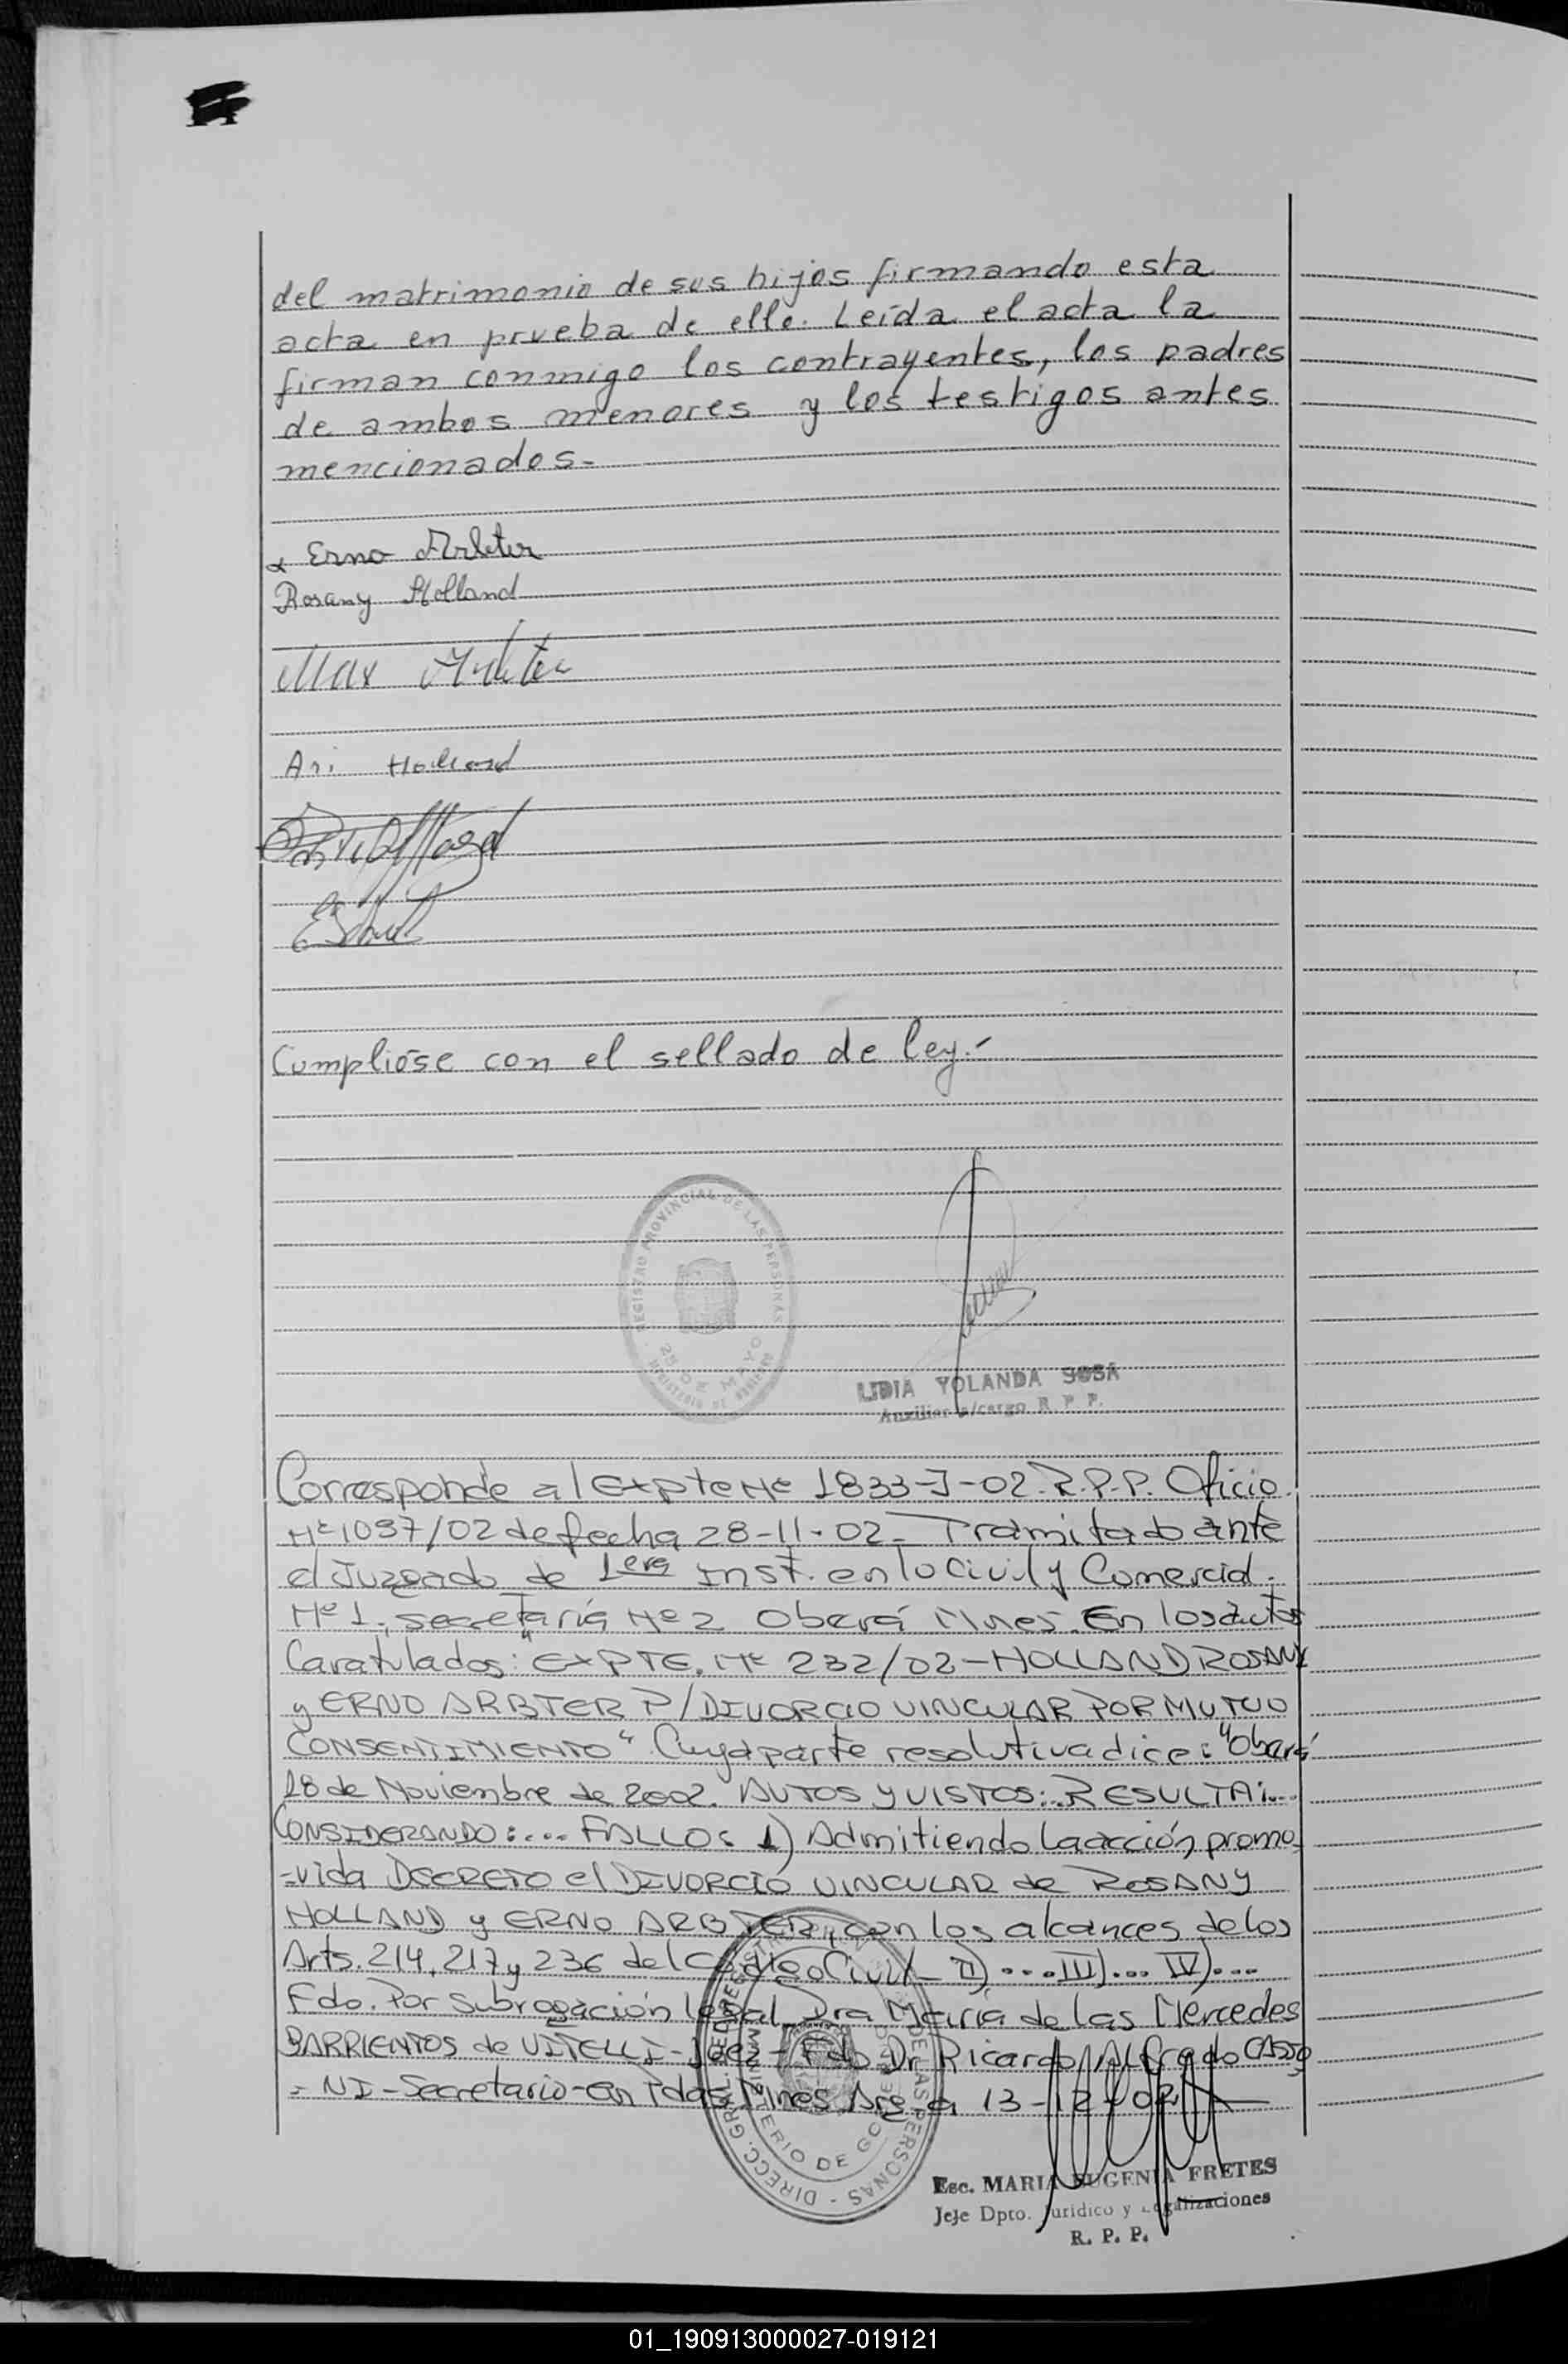 del matrimonio de sus hijos firmando esta
acta en prueba de ello. Leída el acta la
firman conmigo los contrayentes, los padres
de ambos menores y los testigos antes
mencionados.-
x Erno Arbter
Rosany Holland
Max Arbter
Ari Holland
Cumplióse con el sellado de ley.-
REGISTRO PROVINCIAL DE LAS PERSONAS
25 DE MAYO
MINISTERIO DE GOBIERNO
LIDIA YOLANDA SOSA
Auxiliar a/cargo R. P. P.
Corresponde al Expte Nº 1833-J-02-R.P.P. Oficio
Nº 1097/02 de fecha 28-11-02- Tramitado ante
el Juzgado de 1era Inst. en lo Civil y Comercial
Nº 1, secretaría Nº 2 Oberá Mnes. En los autos
Caratulados: "EXPTE. Nº 232/02-HOLLAND ROSANY
y ERNO ARBTER P/DIVORCIO VINCULAR POR MUTUO
CONSENTIMIENTO". Cuya parte resolutiva dice: "Oberá
18 de Noviembre de 2002. AUTOS Y VISTOS:..RESULTA:...
CONSIDERANDO:.... FALLO: 1) Admitiendo la acción promo-
-vida DECRETO el DIVORCIO VINCULAR de ROSANY
HOLLAND y ERNO ARBTER, con los alcances de los
Arts. 214, 217 y 236 del Código Civil- II)....III)... IV)...
Fdo. Por subrogación legal Dra María de las Mercedes
BARRIENTOS de VITELLI-Juez- Fdo Dr Ricardo Alfredo CASSO
=NI-Secretario-en Pdas, Mnes Arg. a 13-12-02
DIRECC. GRAL. DEL REGISTRO PROVINCIAL DE LAS PERSONAS
MINISTERIO DE GOBIERNO
Esc. MARIA EUGENIA FRETES
Jefe Dpto. Jurídico y Legalizaciones
R. P. P.
01_190913000027-019121